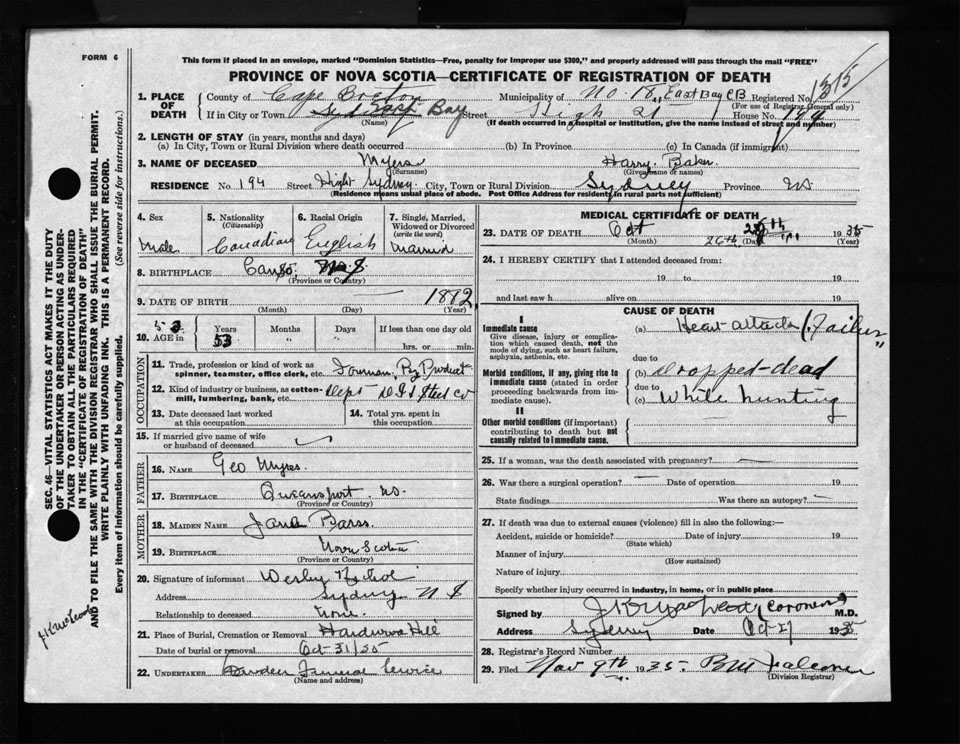 FORM 6
This form if placed in an envelope, marked "Dominion Statistics—Free, penalty for improper use $300," and properly addressed will pass through the mail "FREE"
PROVINCE OF NOVA SCOTIA—CERTIFICATE OF REGISTRATION OF DEATH
1. PLACE OF DEATH
County of Cape Breton Municipality of No. 18, East Bay CB Registered No. 1315
(For use of Registrar General only)
If in City or Town East Bay Street High St House No. 194
(Name) (If death occurred in a hospital or institution, give the name instead of street and number)
2. LENGTH OF STAY (in years, months and days)
(a) In City, Town or Rural Division where death occurred (b) In Province (c) In Canada (if immigrant)
3. NAME OF DECEASED Myers Harry Baker
(Surname) (Given name or names)
RESIDENCE No. 194 Street Hight Sydney City, Town or Rural Division Sydney Province NS
(Residence means usual place of abode. Post Office Address for residents in rural parts not sufficient)
4. Sex Male
5. Nationality (Citizenship) Canadian
6. Racial Origin English
7. Single, Married, Widowed or Divorced (write the word) Married
8. BIRTHPLACE Canso N.S
(Province or Country)
9. DATE OF BIRTH 1882
(Month) (Day) (Year)
10. AGE in 53 Years Months Days If less than one day old
hrs. or min.
OCCUPATION
11. Trade, profession or kind of work as spinner, teamster, office clerk, etc. Foreman, By Product
12. Kind of industry or business, as cotton-mill, lumbering, bank, etc. Dept D.I.S Steel Co
13. Date deceased last worked at this occupation
14. Total yrs. spent in this occupation
15. If married give name of wife or husband of deceased
FATHER
16. NAME Geo Myers
17. BIRTHPLACE Queensport NS.
(Province or Country)
MOTHER
18. MAIDEN NAME Barss
19. BIRTHPLACE Nova Scotia
(Province or Country)
20. Signature of informant Wesley
Address Sydney N S
Relationship to deceased none
21. Place of Burial, Cremation or Removal Hardwood Hill
Date of burial or removal Oct 31/35
22. UNDERTAKER Funeral Service
(Name and address)
MEDICAL CERTIFICATE OF DEATH
23. DATE OF DEATH Oct 26th 1935
(Month) (Day) (Year)
24. I HEREBY CERTIFY that I attended deceased from:
19 to 19
and last saw h alive on 19
CAUSE OF DEATH
I
Immediate cause
Give disease, injury or complication which caused death, not the mode of dying, such as heart failure, asphyxia, asthenia, etc.
(a) Heart attack (Failure)
due to
Morbid conditions, if any, giving rise to immediate cause (stated in order proceeding backwards from immediate).
(b) dropped-dead
due to
(c) While hunting
II
Other morbid conditions (if important) contributing to death but not causally related to immediate cause.
25. If a woman, was the death associated with pregnancy?
26. Was there a surgical operation? Date of operation 19
State findings Was there an autopsy?
27. If death was due to external causes (violence) fill in also the following:—
Accident, suicide or homicide? Date of injury 19
(State which)
Manner of injury
(How sustained)
Nature of injury
Specify whether injury occurred in industry, in home, or in public place
Signed by Coroner M.D.
Address Sydney Date Oct-27 1935
28. Registrar's Record Number
29. Filed Nov 9th 1935. B M Falconer
(Division Registrar)
SEC. 46—VITAL STATISTICS ACT MAKES IT THE DUTY
OF THE UNDERTAKER OR PERSON ACTING AS UNDER-
TAKER TO OBTAIN ALL THE PARTICULARS REQUIRED
IN THE "CERTIFICATE OF REGISTRATION OF DEATH"
AND TO FILE THE SAME WITH THE DIVISION REGISTRAR WHO SHALL ISSUE THE BURIAL PERMIT.
WRITE PLAINLY WITH UNFADING INK. THIS IS A PERMANENT RECORD.
Every item of information should be carefully supplied. (See reverse side for instructions.)